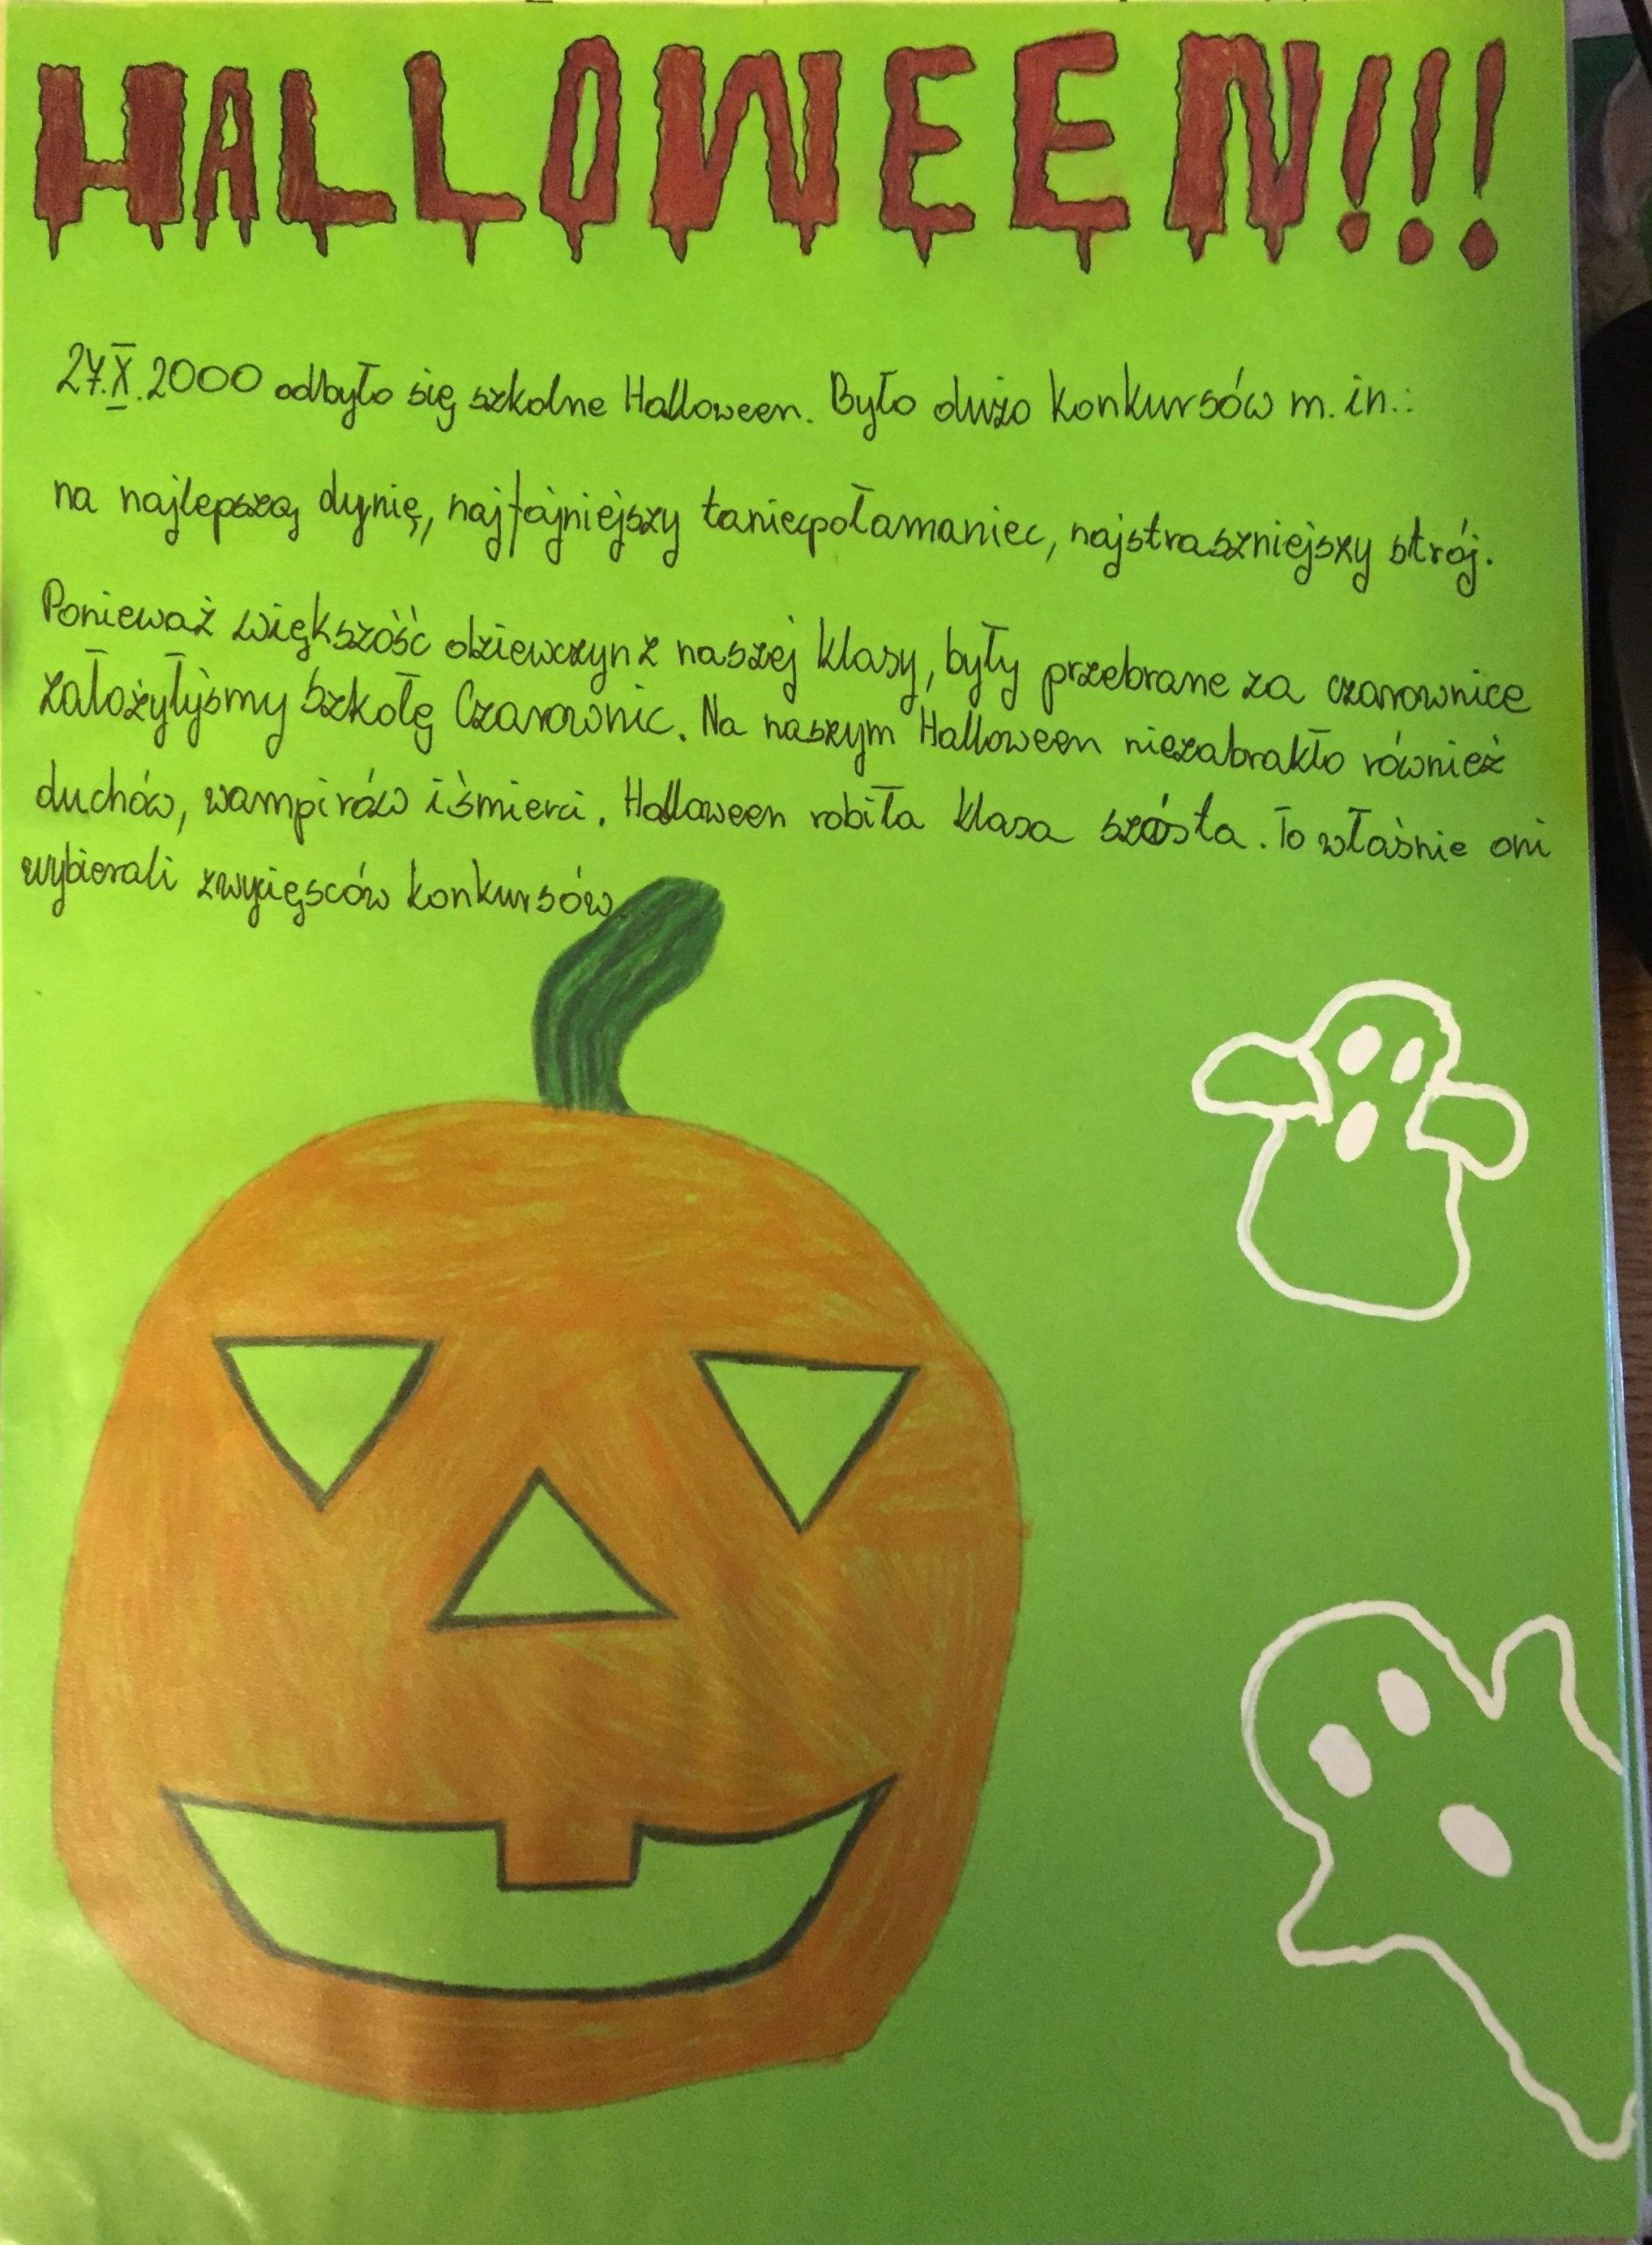 HALLOWEEN!!!
27.X.2000 odbyło się szkolne Halloween. Było dużo konkursów m.in.:
na najlepszą dynię, najfajniejszy taniecpołamaniec, najstraszniejszy strój.
Ponieważ większość dziewczyn z naszej klasy, były przebrane za czarownice
założyłyśmy Szkołę Czarownic. Na naszym Halloween niezabrakło również
duchów, wampirów i śmierci. Halloween robiła klasa szósta. To właśnie oni
wybierali zwycięsców konkursów.